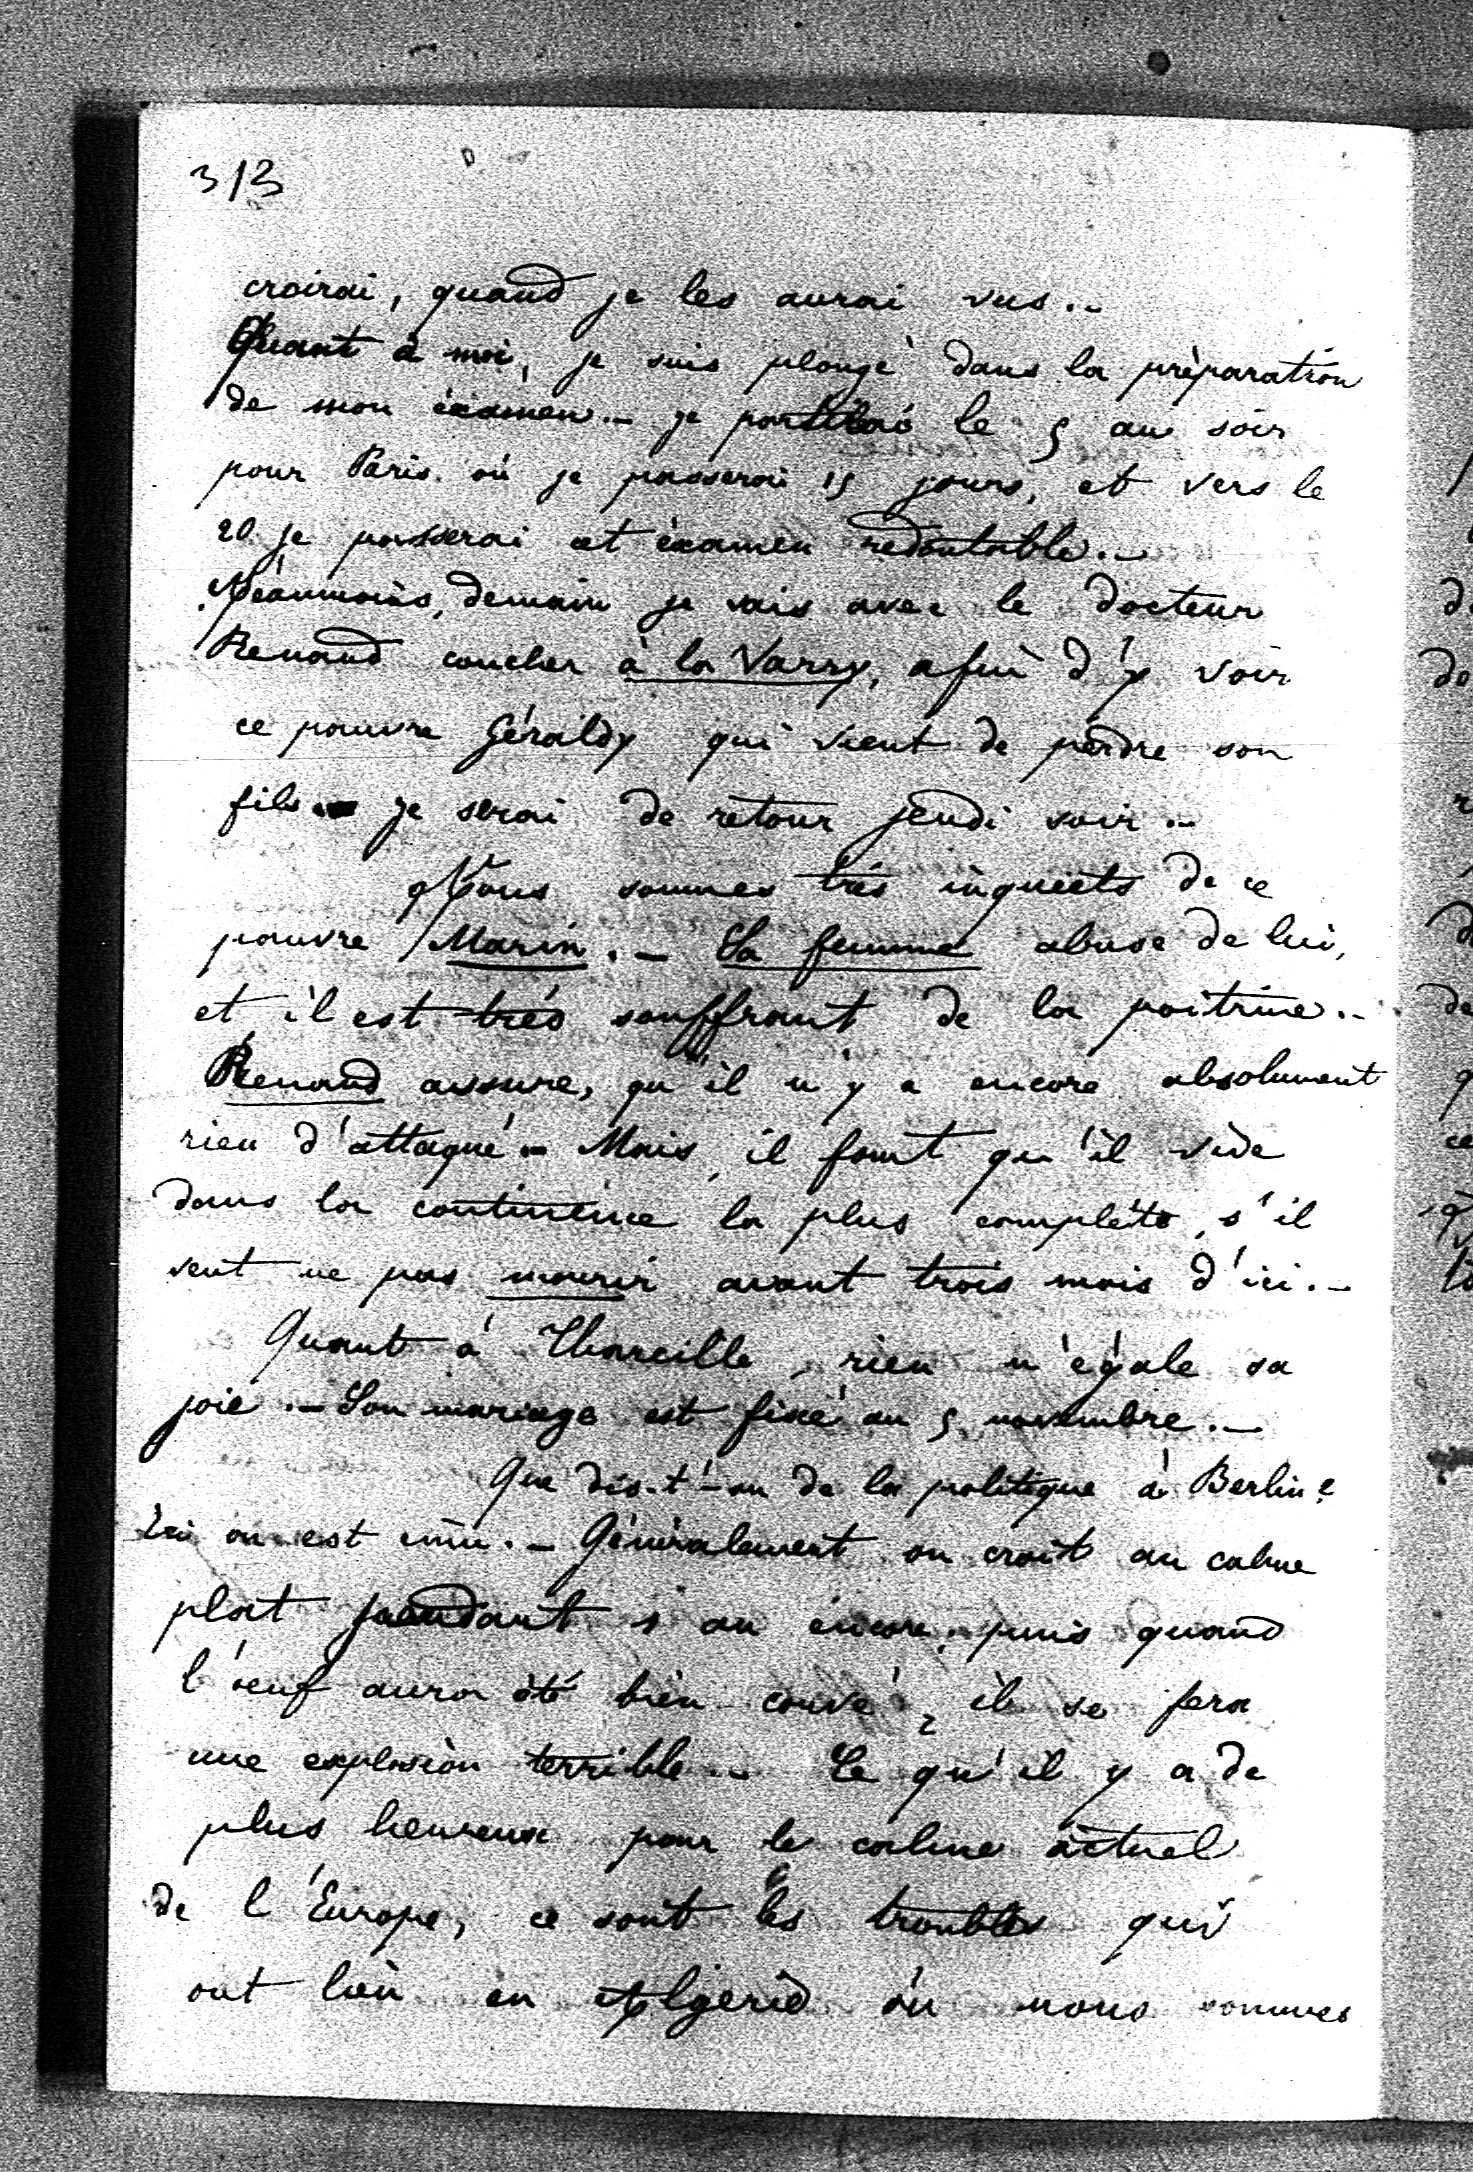 313
croirai, quand je les aurai vus.-
Quant à moi, je suis plongé dans la préparation
de mon éxamen.- je partirai le 5 au soir
pour Paris où je passerai 15 jours, et vers le
20 je passerai cet éxamen redoutable.-
Néanmoins, demain je vais avec le docteur
Renaud coucher à la Varry, afin d'y voir
ce pauvre Géraldy qui vient de perdre son
fils.- je serai de retour jeudi soir.-
Nous sommes très inquiets de ce
pauvre Marin.- Sa femme abuse de lui,
et il est très souffrant de la poitrine.-
Renaud assure, qu'il n'y a encore absolument
rien d'attaqué.- Mais, il faut qu'il vive
dans la continence la plus complète, s'il
veut ne pas mourir avant trois mois d'ici.-
Quant à Thareille, rien n'égale sa
joie.- Son mariage est fixé au 5 novembre.-
Que dis-t'-on de la politique à Berlin?
Ici on est ému.- Généralement on croit au calme
plat pendant 1 an encore, puis quand
l'oeuf aura été bien couvé, il se fera
une explosion terrible.- Ce qu'il y a de
plus heureux pour le calme actuel
de l'Europe, ce sont les troubles qui
ont lieu en Algérie où nous sommes